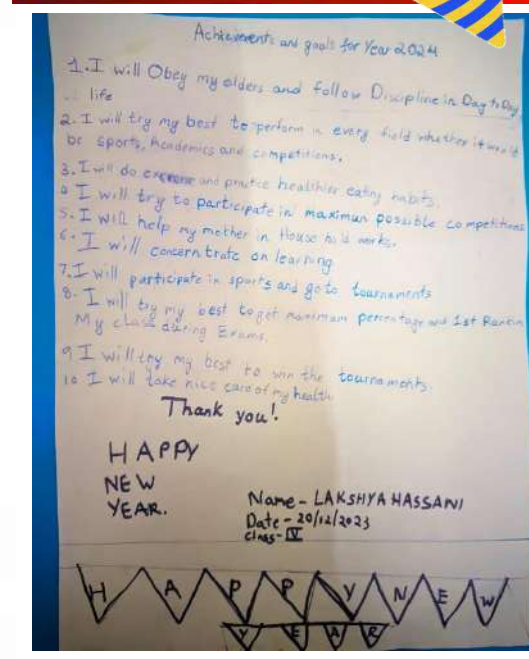 Achievements and goals for Year 2024
1. I will Obey my elders and follow Discipline in Day to Day
life
2. I will try my best to perform in every field whether it would
be sports, Academics and competitions.
3. I will do exercise and practice healthier eating habits.
4 I will try to participate in maximum possible competitions
5. I will help my mother in House hold works.
6. I will concerntrate on learning
7. I will participate in sports and go to tournaments
8. I will try my best to get maximum percentage and 1st Rank in
My class during Exams.
9 I will try my best to win the tournaments.
10 I will take nice care of my health
Thank you!
HAPPY
NEW
YEAR.
Name - LAKSHYA HASSANI
Date - 20/12/2023
class - IV
HAPPY NEW
YEAR